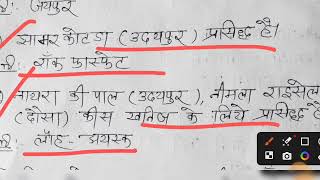 जयपुर
झामर कोटडा (उदयपुर) प्रसिद्ध है।
रॉक फास्फेट
नाथरा की पाल (उदयपुर), नीमला राइसेल
(दौसा) कीस खनिज के लिये प्रसिद्ध है
लौह-अयस्क